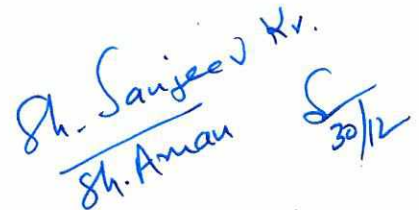 Sh. Sanjeev Kr.
Sh. Aman
30/12